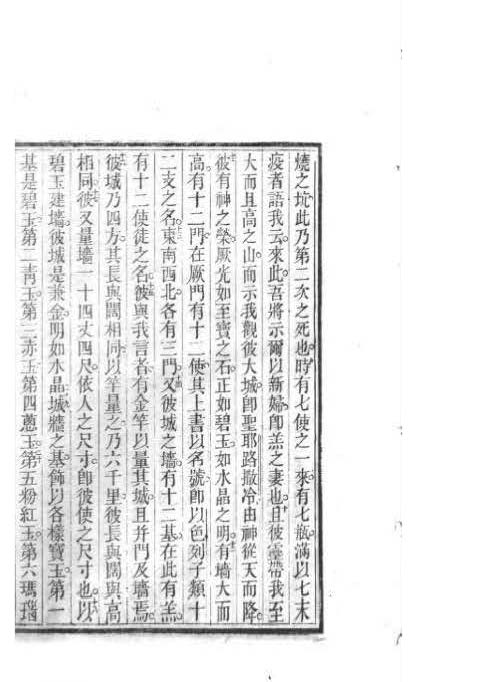 燒之坑此乃第二次之死也時有七使之一來有七瓶滿以七末
疫者語我云來此吾將示爾以新婦卽羔之妻也且彼靈帶我至
大而且高之山而示我觀彼大城卽聖耶路撒冷由神從天而降
彼有神之榮厥光如至寶之石正如碧玉如水晶之明有墻大而
高有十二門在厥門有十二使其上書以名號卽以色列子類十
二支之名東南西北各有三門又彼城之墻有十二基在此有羔
有十二使徒之名彼與我言者有金竿以量其城且并門及墻焉
彼城乃四方其長與闊相同以竿量之乃六千里彼長與闊與高
相同彼又量墻一十四丈四尺依人之尺寸卽彼使之尺寸也以
碧玉建墻彼城是兼金明如水晶城牆之基飾以各樣寶玉第一
基是碧玉第二靑玉第三赤玉第四蔥玉第五粉紅玉第六瑪瑙